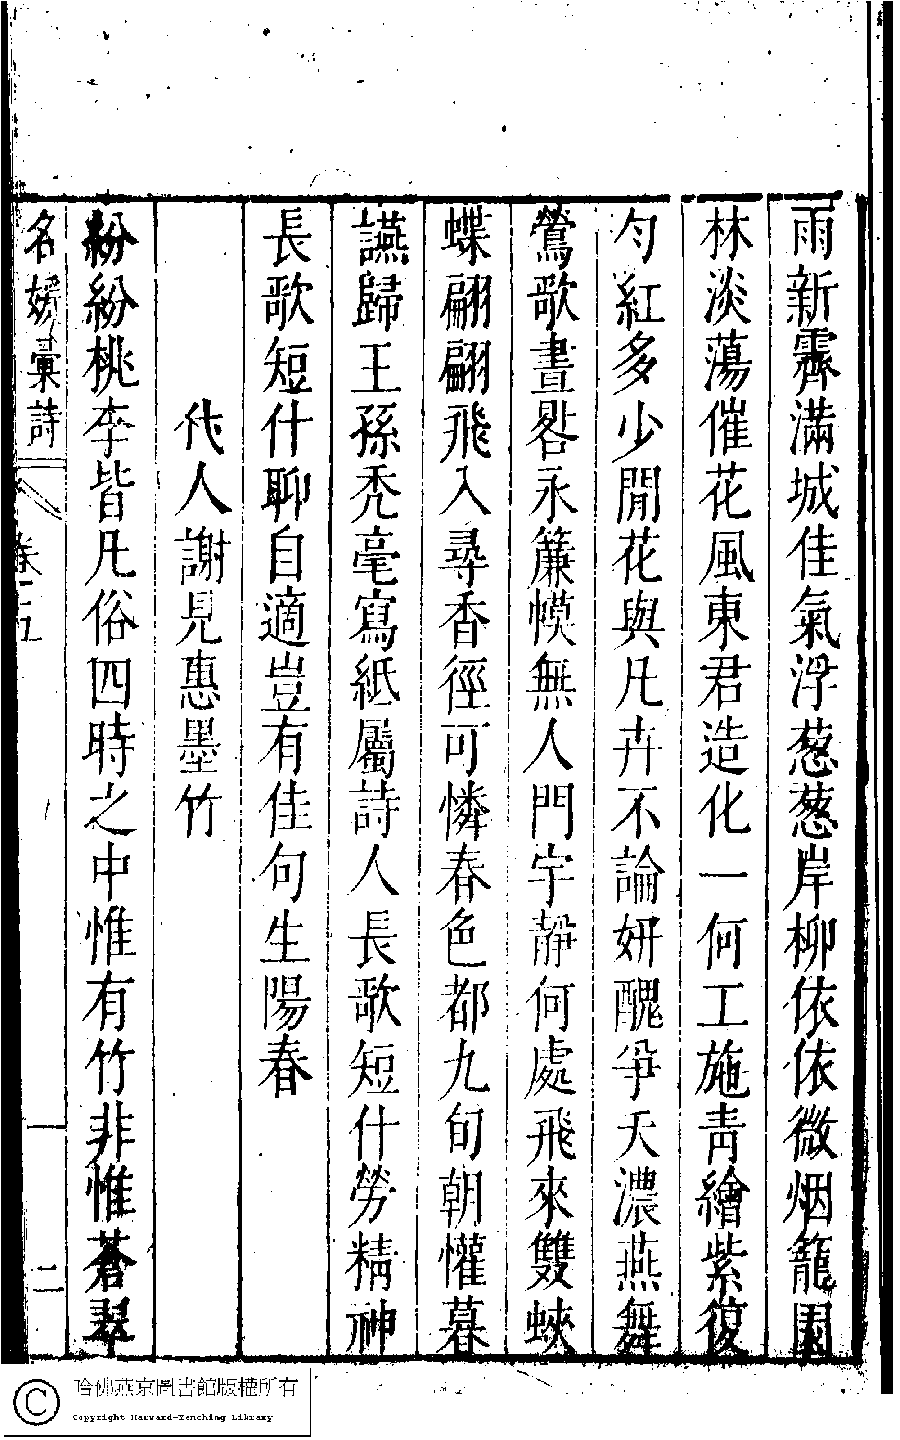 雨新霽滿城佳氣浮葱葱岸柳依依微烟籠園
林淡蕩催花風東君造化一何工施青繪紫復
勻紅多少閒花與凡卉不論妍醜爭天濃燕舞
鶯歌晝晷永簾幙無人門宇靜何處飛來雙蛺
蝶翩翩飛入尋香徑可憐春色都九旬朝懽暮
讌歸王孫禿毫寫紙屬詩人長歌短什勞精神
長歌短什聊自適豈有佳句生陽春
代人謝見惠墨竹
紛紛桃李皆凡俗四時之中惟有竹非惟蒼翠
名媛彙詩 卷十五 二
哈佛燕京圖書館版權所有
Copyright Harvard-Yenching Library